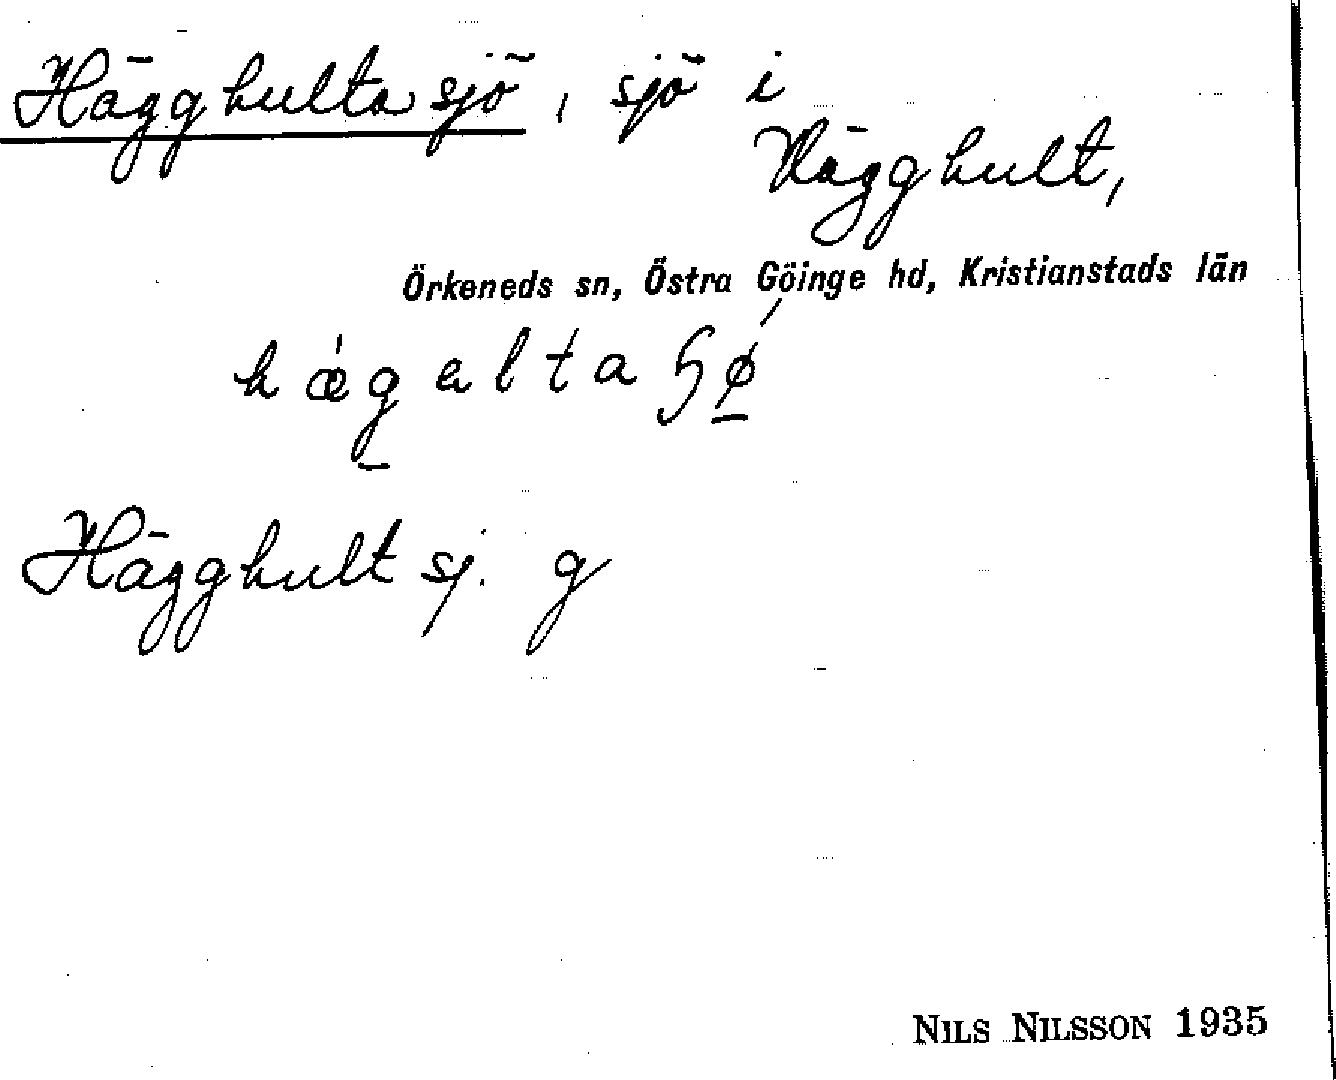 Hägghultasjö, sjö i
Hägghult,
Örkeneds sn, Östra Göinge hd, Kristianstads län
Hägghult sj. g
NILS NILSSON 1935